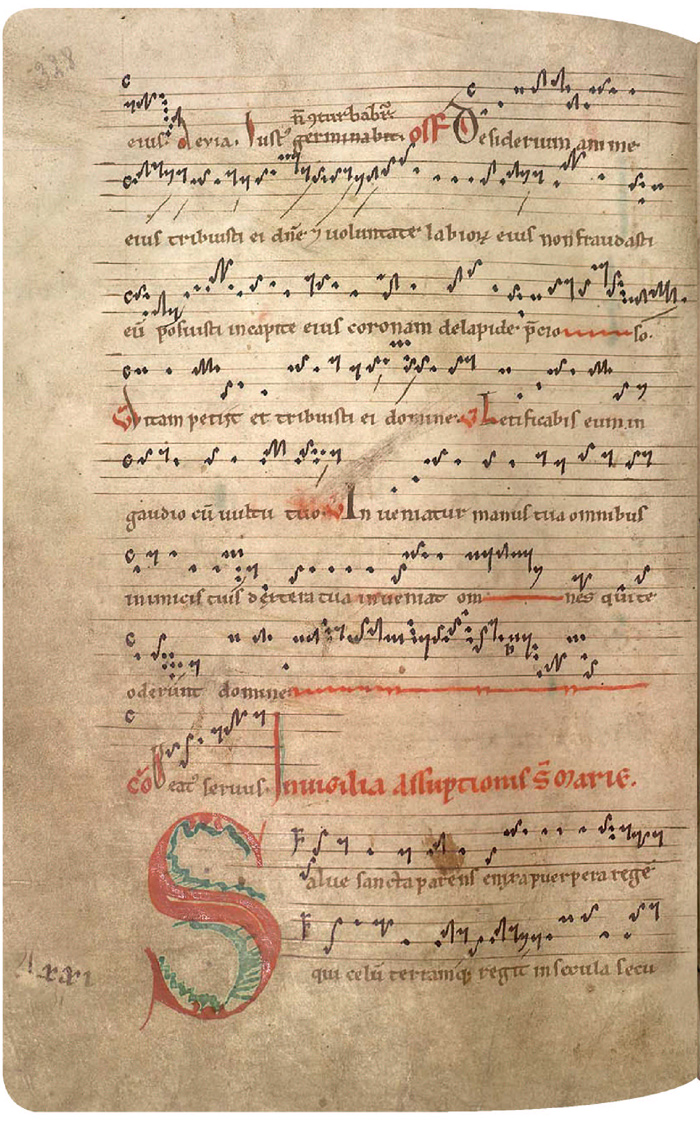 328
eius. Aevia. Iust9 n̄ 9turbabit̄ germinabit. Off Desiderium anime
eius tribuisti ei dn̄e ⁊ voluntate labioꝝ eius non fraudasti
eū posuisti in capite eius coronam de lapide p̄cio so.
Vitam petiit et tribuisti ei domine. V Letificabis eum in
gaudio cū vultu tuo. V Inveniatur manus tua omnibus
inimicis tuis dextera tua inveniat om nes qui te
oderunt domine
Cō Beat9 servus. In vigilia assūptionis S̄ Marie.
Salve sancta parens enixa puerpera regē
qui celū terramq; regit in secula secu